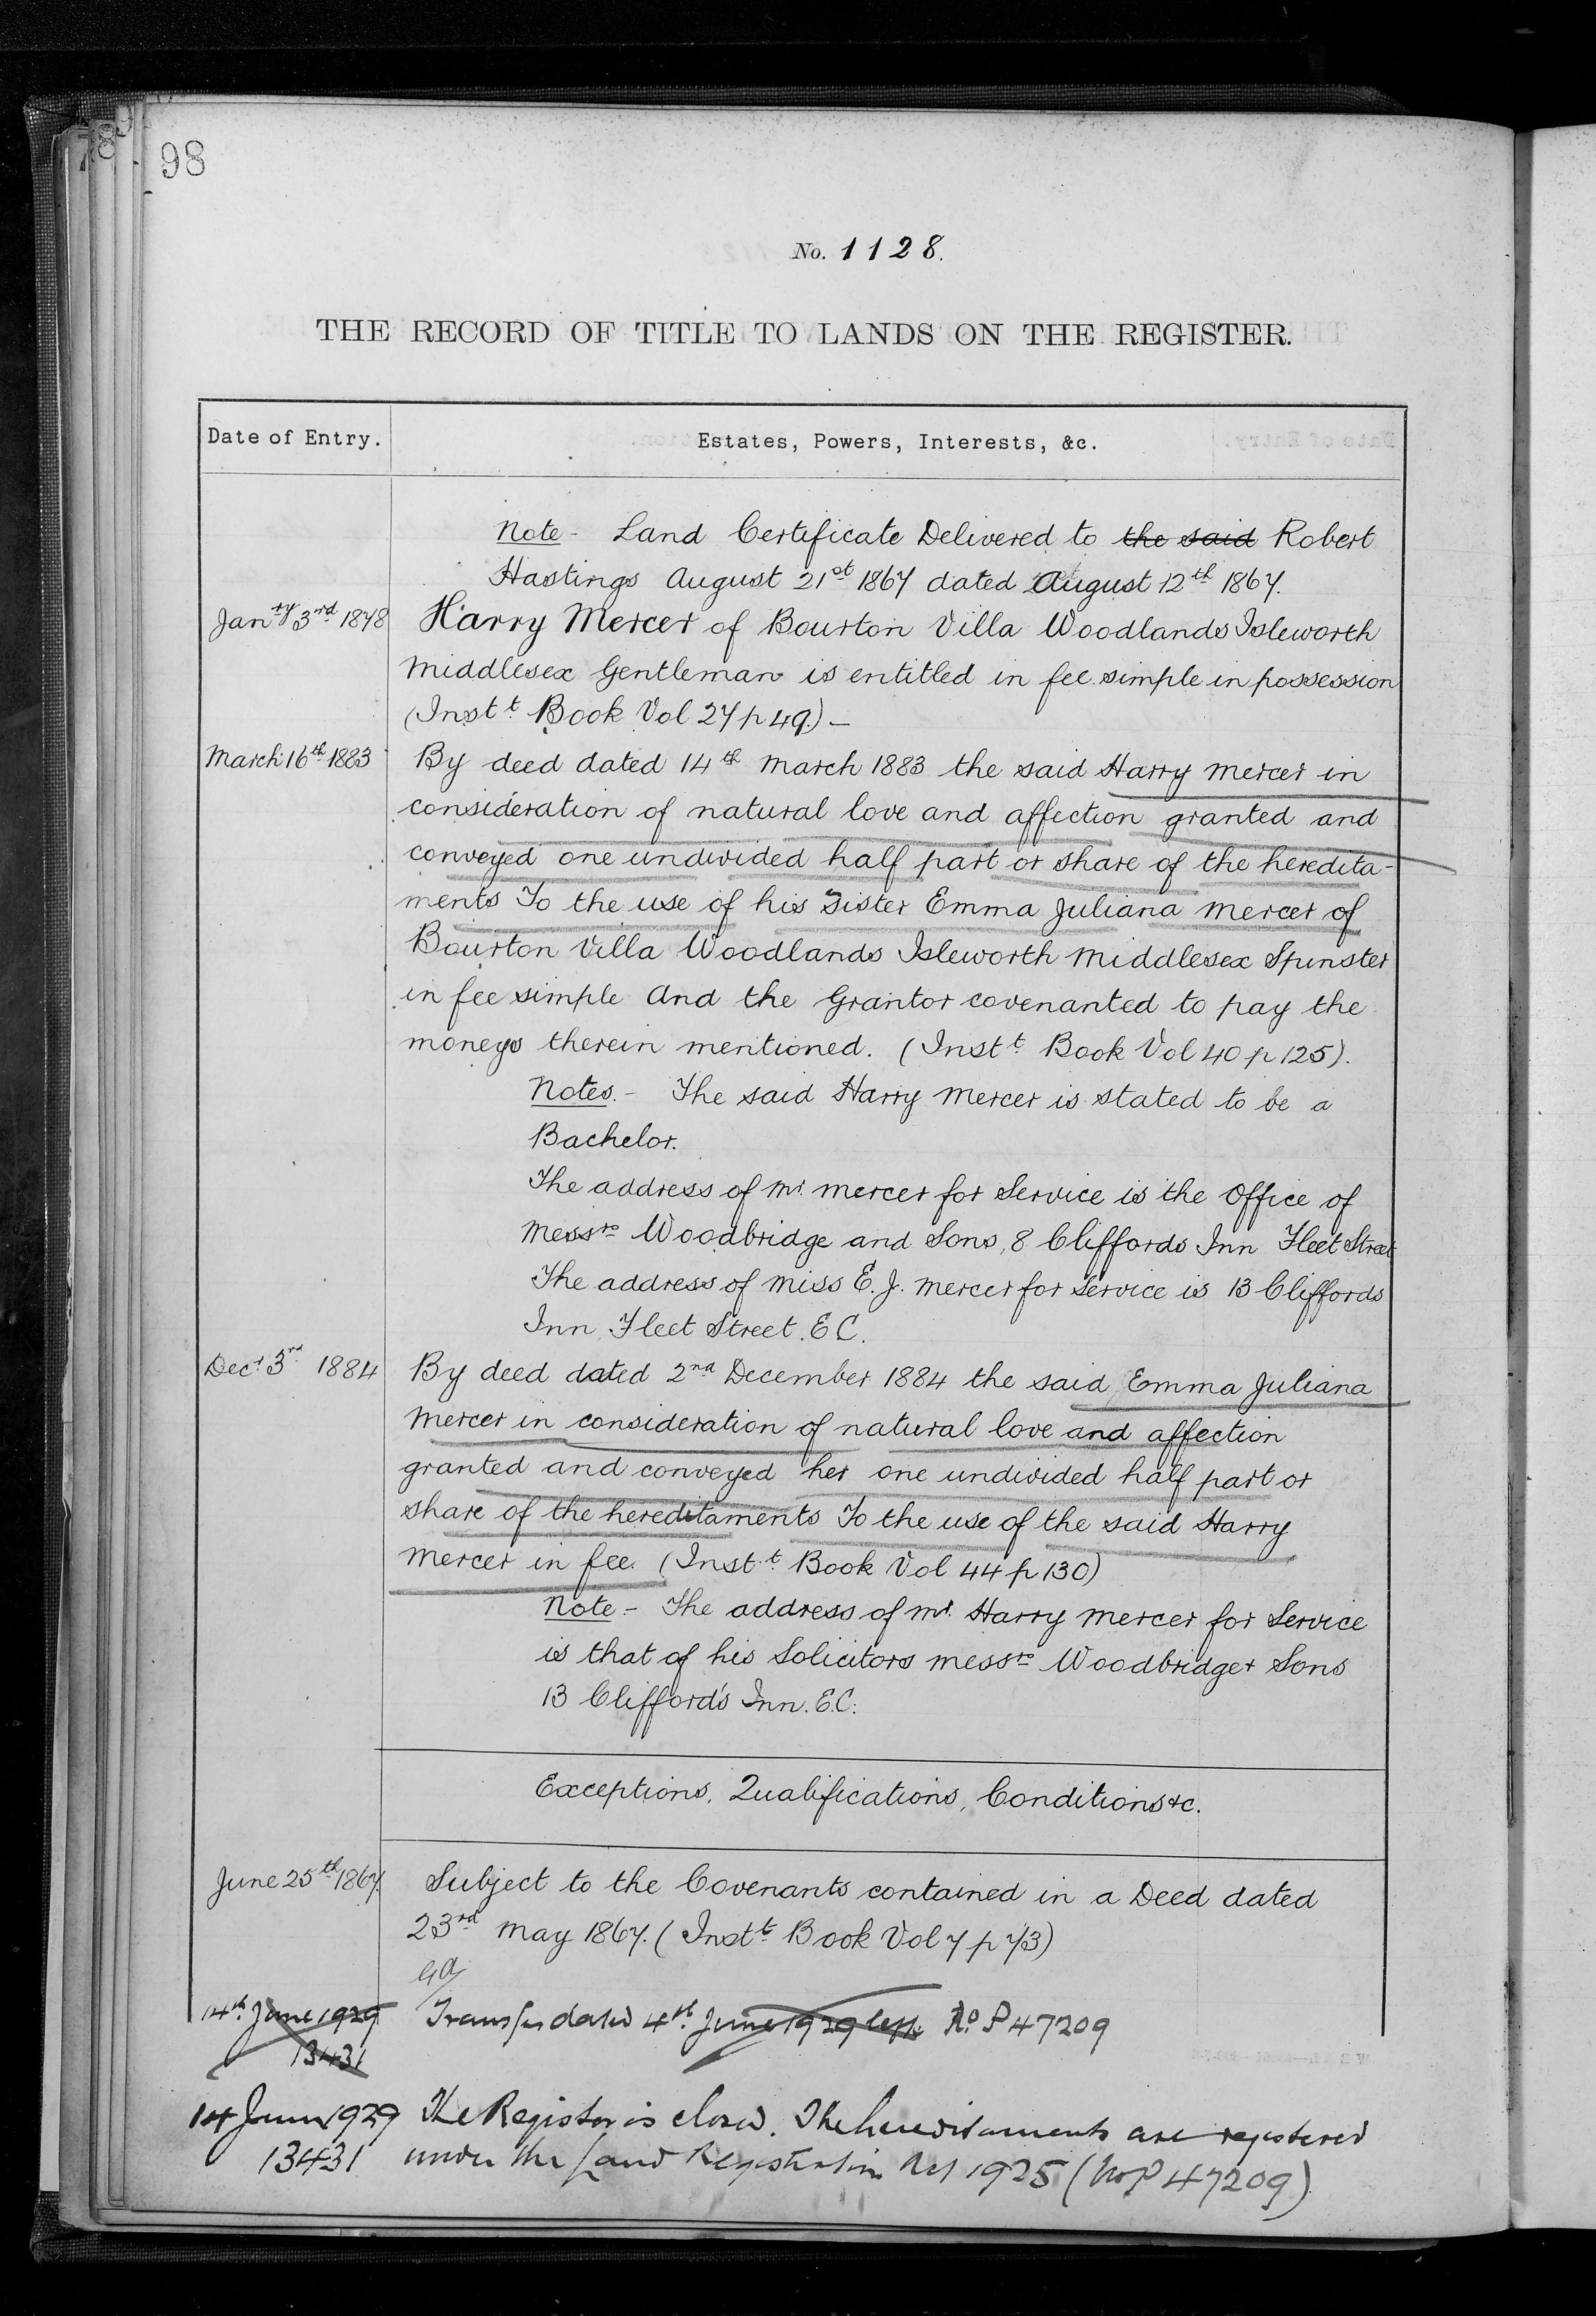 98
No. 1128.
THE RECORD OF TITLE TO LANDS ON THE REGISTER.
Date of Entry.
Estates, Powers, Interests, &c.
Note - Land Certificate Delivered to the said Robert
Hastings August 21st 1867 dated August 12th 1867.
Janry 3rd 1878 Harry Mercer of Bourton Villa Woodlands Isleworth
Middlesex Gentleman is entitled in fee simple in possession
(Instt. Book Vol 27 p 49.) -
March 16th 1883 By deed dated 14th March 1883 the said Harry Mercer in
consideration of natural love and affection granted and
conveyed one undivided half part or share of the heredita-
ments To the use of his Sister Emma Juliana Mercer of
Bourton Villa Woodlands Isleworth Middlesex Spinster
in fee simple And the Grantor covenanted to pay the
moneys therein mentioned. (Instt. Book Vol 40 p 125).
Notes. - The said Harry Mercer is stated to be a
Bachelor.
The address of Mr. Mercer for Service is the Office of
Messrs Woodbridge and Sons, 8 Cliffords Inn Fleet Street
The address of Miss E. J. Mercer for Service is 13 Cliffords
Inn Fleet Street. E C.
Decr 3rd 1884 By deed dated 2nd December 1884 the said Emma Juliana
Mercer in consideration of natural love and affection
granted and conveyed her one undivided half part or
share of the hereditaments To the use of the said Harry
Mercer in fee. (Instt. Book Vol 44 p 130)
Note - The address of Mr. Harry Mercer for Service
is that of his Solicitors Messrs Woodbridge & Sons
13 Clifford's Inn. E.C.
Exceptions, Qualifications, Conditions &c.
June 25th 1867. Subject to the Covenants contained in a Deed dated
23rd May 1867. (Instt. Book Vol 7 p 73)
14th June 1929 Transfer dated 4th June 1929 No P47209
13431
14 June 1929 The Register is closed. The hereditaments are registered
13431 under the Land Registration Act 1925 (No P 47209)